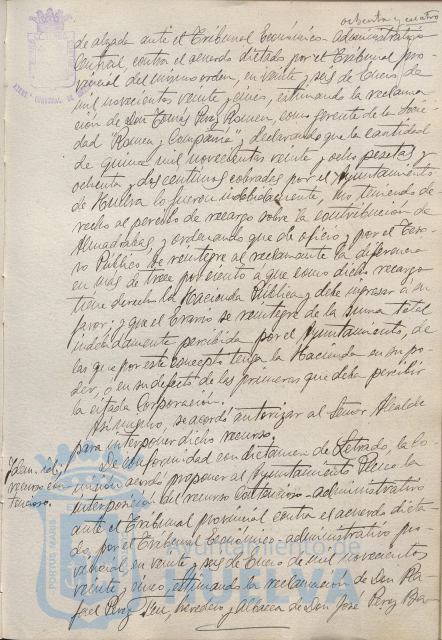 ochenta y cuatro
de alzada ante el Tribunal Económico-administrativo
Central contra el acuerdo dictado por el Tribunal pro-
vincial del mismo orden, en veinte y seis de Enero de
mil novecientos veinte y cinco, estimando la reclama-
ción de Don Tomás Roman, como gerente de la Socie-
dad "Romeu y Compañía", declarando que la cantidad
de quince mil novecientas veinte y ocho pesetas y
ochenta y dos centimos cobradas por el Ayuntamiento
de Huelva lo fueron indebidamente, no teniendo de-
recho al percibo de recargo sobre la contribución de
Almadrabas, y ordenando que de oficio y por el Teso-
ro Público se reintegre al reclamante la diferencia
en más de trece por ciento a que como dicho recargo
tiene derecho la Hacienda Pública y debe ingresar a su
favor; y que el Erario se reintegre de la suma total
indebidamente percibida por el Ayuntamiento, de
las que por este concepto tenga la Hacienda en su po-
der, ó en su defecto de las primeras que deba percibir
la citada Corporación.
Asimismo, se acordó autorizar al Señor Alcalde
para interponer dicho recurso.
Idem. id.,
recurso con-
tencioso.
De conformidad con dictamen de Letrado, la Co-
misión acordó proponer al Ayuntamiento Pleno la
interposición del recurso contencioso-administrativo
ante el Tribunal provincial contra el acuerdo dicta-
do, por el Tribunal Económico-administrativo pro-
vincial en veinte y seis de Enero de mil novecientos
veinte y cinco, estimando la reclamación de Don Ra-
fael Perez heredero y Albacea de Don José Perez
PORTUS MARIS
Ayuntamiento de
HUELVA